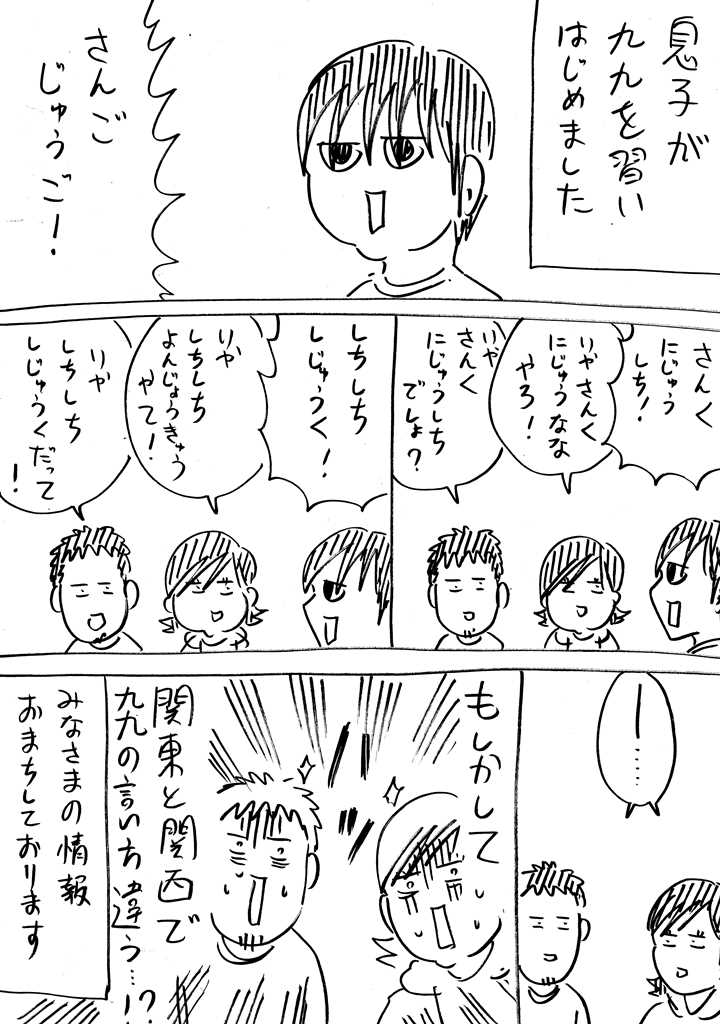 息子が
九九を習い
はじめました
さんご
じゅうご!
さんく
にじゅう
しち!
いやさんく
にじゅうなな
やろ!
いや
さんく
にじゅうしち
でしょ?
しちしち
しじゅうく!
いや
しちしち
よんじょうきゅう
やて!
いや
しちしち
しじゅうくだって
!
……
もしかして
関東と関西で
九九の言い方違う…!?
みなさまの情報
おまちしております